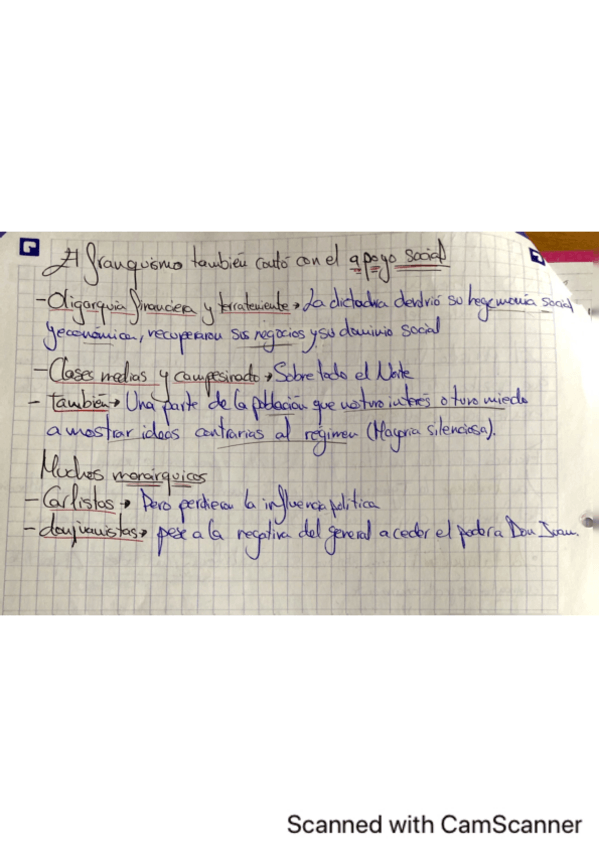 El franquismo también contó con el apoyo social
-Oligarquía financiera y terrateniente→ La dictadura devolvió su hegemonía social
y económica, recuperaron sus negocios y su dominio social
-Clases medias y campesinado→ Sobre todo el Norte
- también→ Una parte de la población que no tuvo interés o tuvo miedo
a mostrar ideas contrarias al régimen (Mayoría silenciosa).
Muchos monárquicos
-Carlistas→ Pero perdieron la influencia política
-donjuanistas→ pese a la negativa del general a ceder el poder a Don Juan.
Scanned with CamScanner